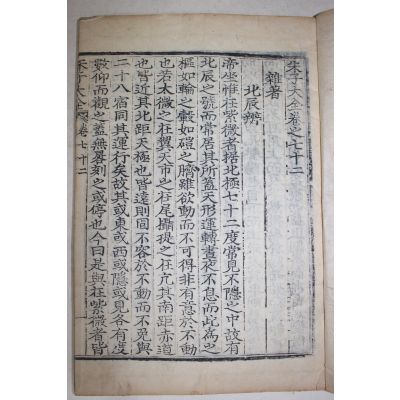 朱子大全卷之七十二
雜著
北辰辨
帝坐惟在紫微者据北極七十二度常見不隱之中故有
北辰之號而常居其所蓋天形運轉晝夜不息而此爲之
樞如輪之轂如磑之臍雖欲動而不可得非有意於不動
也若太微之在翼天市之在尾攝提之在亢其南距赤道
也皆近其北距天極也皆遠則固不容於不動而不免與
二十八宿同其運行矣故其或東或西或隱或見各有度
數仰而觀之蓋無晷刻之或停也今曰是與在紫微者皆
朱子大全 卷七十二